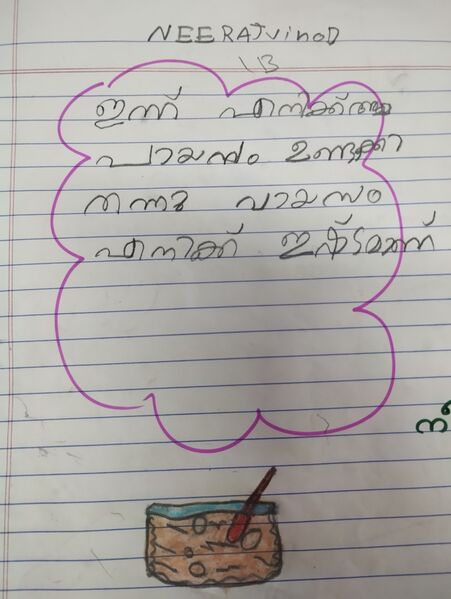 NEERAJ vinoD
1B
ഇന്ന് എനിക്ക് അമ്മ
പായസം ഉണ്ടാക്കി
തന്നു പായസം
എനിക്ക് ഇഷ്ടമാണ്
ന്